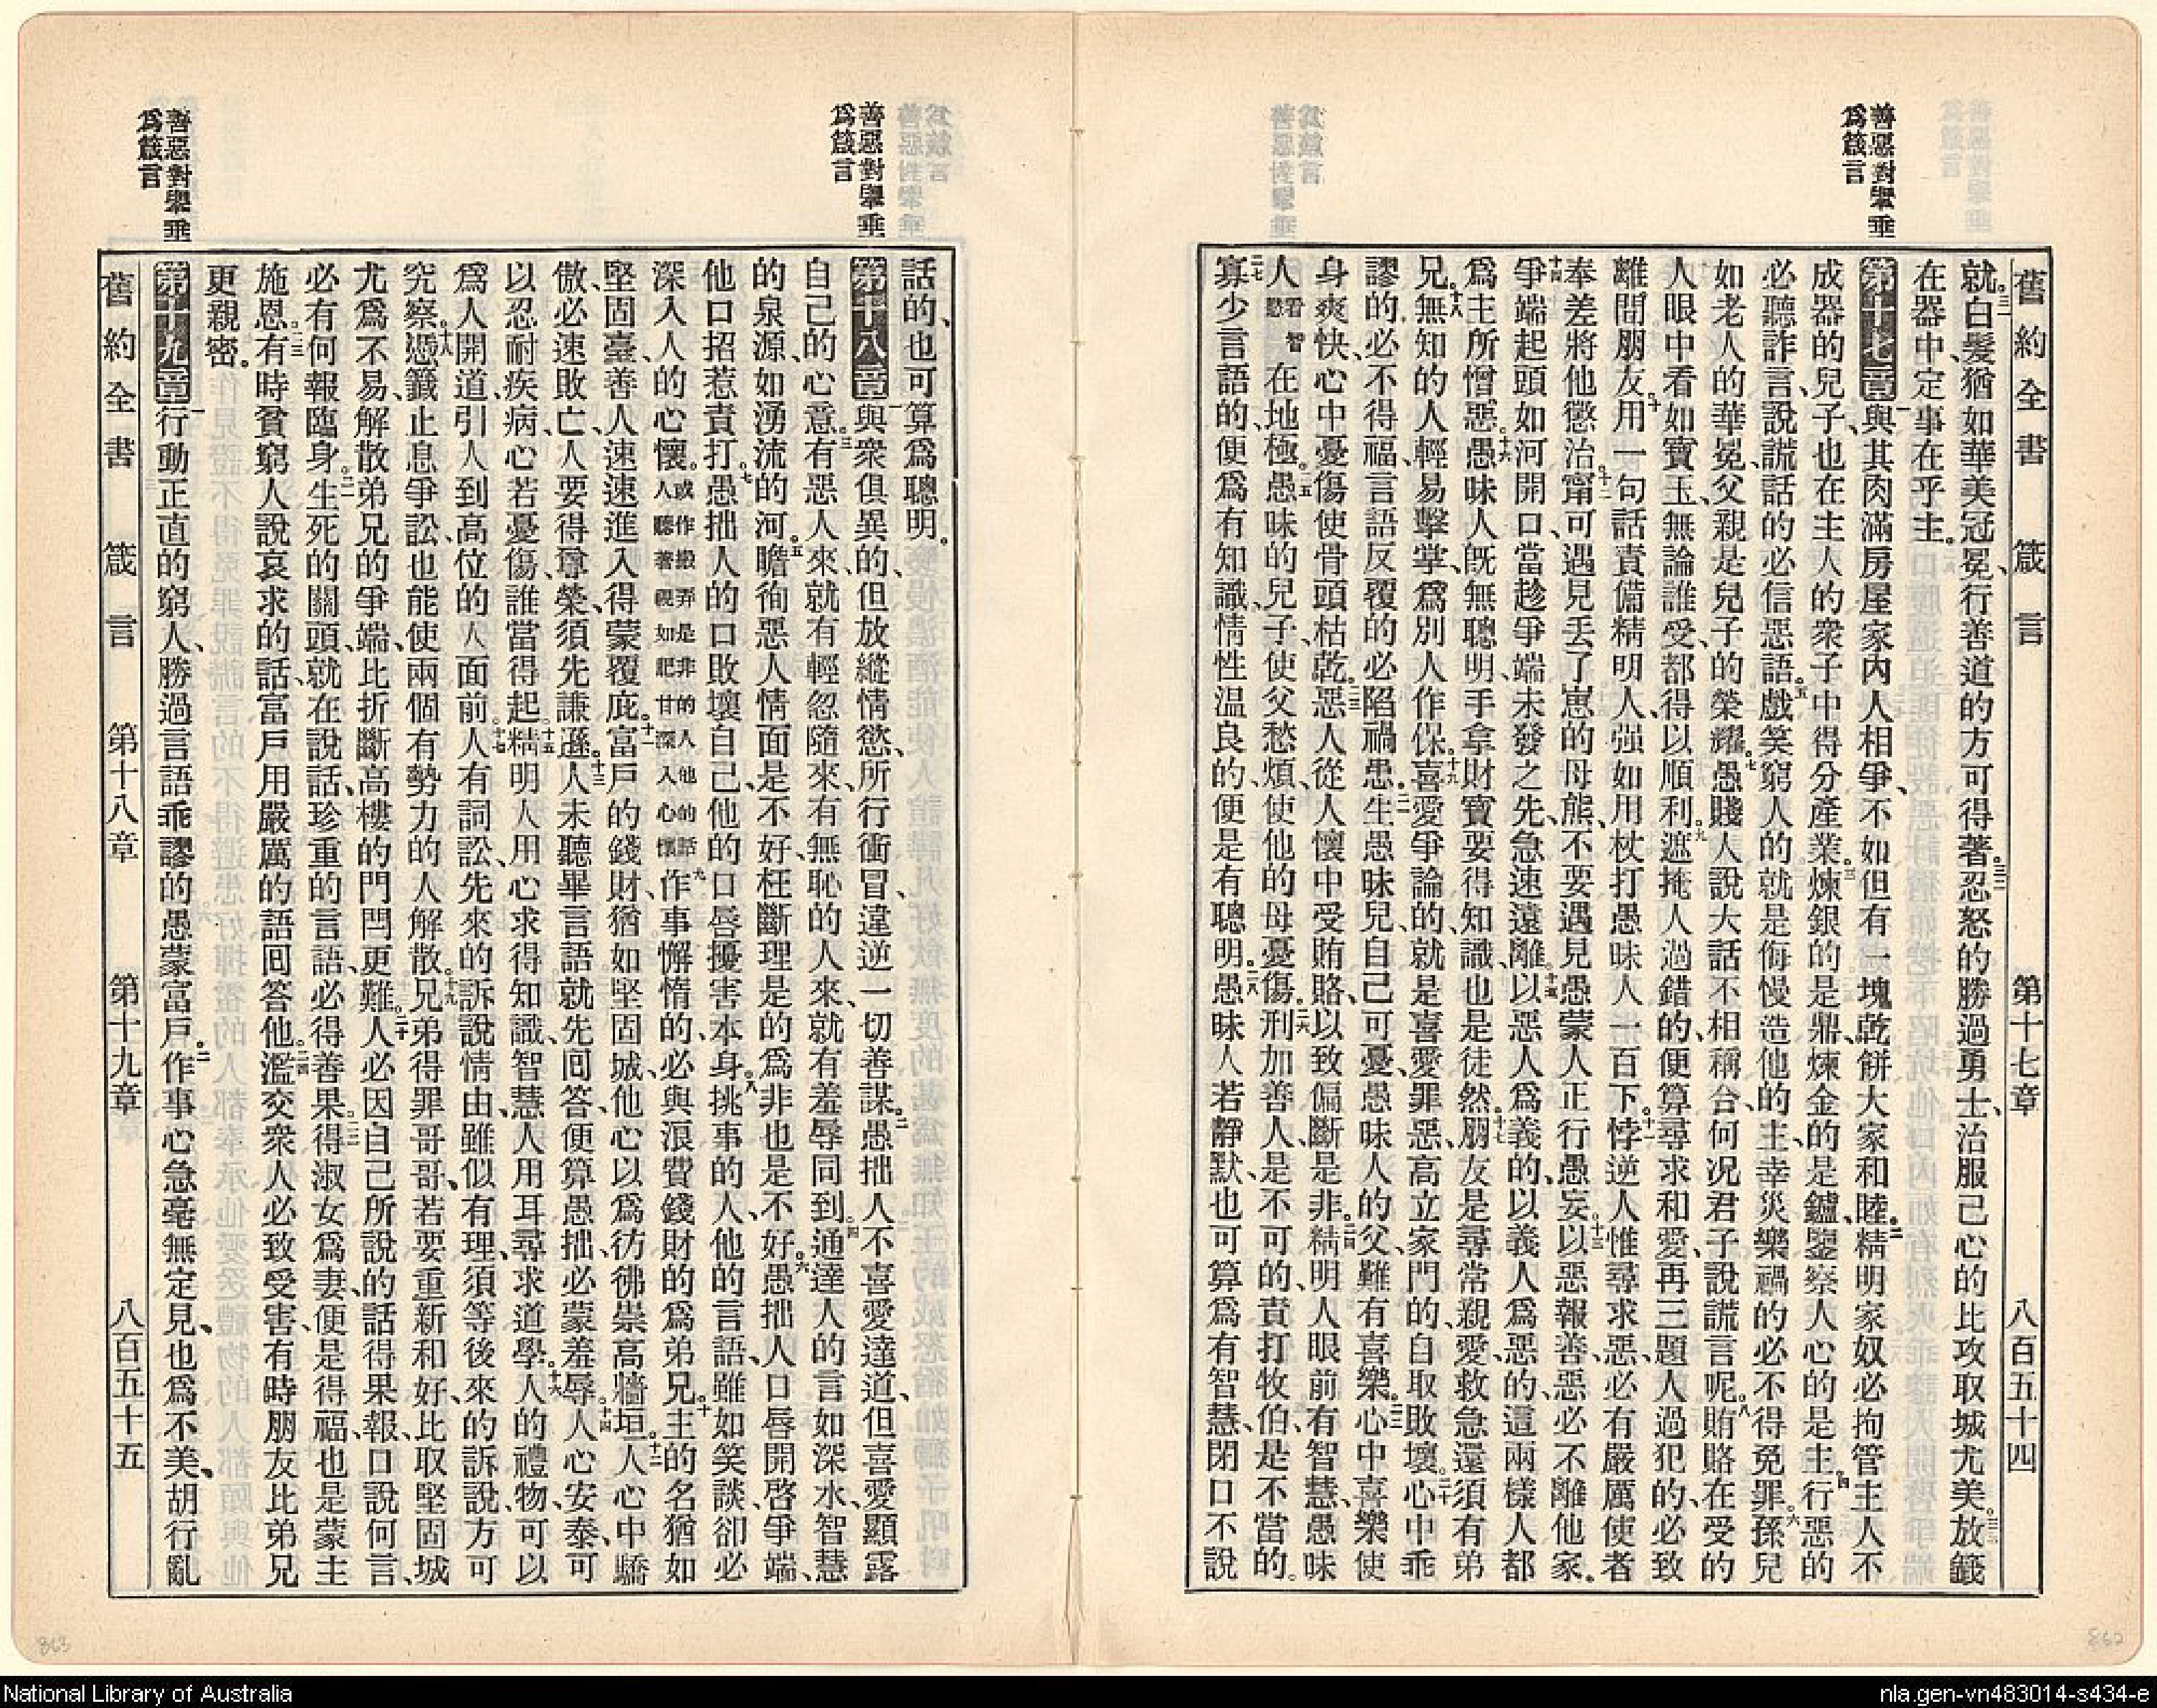 善惡對舉垂
爲箴言
舊約全書 箴言 第十七章 八百五十四
就。三一白髮猶如華美冠冕、行善道的方可得著。三二忍怒的勝過勇士、治服己心的比攻取城尤美。三三放籤
在器中、定事在乎主。
第十七章 一與其肉滿房屋家內人相爭、不如但有一塊乾餅大家和睦。二精明家奴必拘管主人不
成器的兒子、也在主人的衆子中得分產業。三煉銀的是鼎、煉金的是鑪、鑒察人心的是主。四行惡的
必聽詐言、說謊話的必信惡語。五戲笑窮人的就是侮慢造他的主、幸災樂禍的必不得免罪。六孫兒
如老人的華冕、父親是兒子的榮耀。七愚賤人說大話不相稱合、何况君子說謊言呢。八賄賂在受的
人眼中看如寶玉、無論誰受、都得以順利。九遮掩人過錯的、便算尋求和愛、再三題人過犯的、必致
離間朋友。十用一句話責備精明人、强如用杖打愚昧人一百下。十一悖逆人惟尋求惡、必有嚴厲使者
奉差將他懲治。十二甯可遇見丟了崽的母熊、不要遇見愚蒙人正行愚妄。十三以惡報善、惡必不離他家。
十四爭端起頭如河開口、當趁爭端未發之先、急速遠離。十五以惡人爲義的、以義人爲惡的、這兩樣人都
爲主所憎惡。十六愚昧人旣無聰明、手拿財寶要得知識、也是徒然。十七朋友是尋常親愛、救急還須有弟
兄。十八無知的人輕易擊掌、爲別人作保。十九喜愛爭論的、就是喜愛罪惡、高立家門的、自取敗壞。二十心中乖
謬的、必不得福、言語反覆的、必陷禍患。二一生愚昧兒、自己可憂、愚昧人的父、難有喜樂。二二心中喜樂使
身爽快、心中憂傷使骨頭枯乾。二三惡人從人懷中受賄賂、以致偏斷是非。二四精明人眼前有智慧、愚昧
人看智慧在地極。二五愚昧的兒子、使父愁煩、使他的母憂傷。二六刑加善人、是不可的、責打牧伯、是不當的。
二七寡少言語的、便爲有知識、情性温良的、便是有聰明。二八愚昧人若靜默、也可算爲有智慧、閉口不說
善惡對舉垂
爲箴言
話的、也可算爲聰明。
第十八章 一與衆俱異的、但放縱情慾、所行衝冒、違逆一切善謀。二愚拙人不喜愛達道、但喜愛顯露
自己的心意。三有惡人來、就有輕忽隨來、有無恥的人來、就有羞辱同到。四通達人的言如深水、智慧
的泉源、如湧流的河。五瞻徇惡人情面、是不好、枉斷理是的爲非、也是不好。六愚拙人口唇開啓爭端、
他口招惹責打。七愚拙人的口敗壞自己、他的口唇擾害本身。八挑事的人、他的言語、雖如笑談、卻必
深入人的心懷。或作搬弄是非的人他的話人聽著視如肥甘深入心懷九作事懈惰的、必與浪費錢財的爲弟兄。十主的名猶如
堅固臺、善人速速進入、得蒙覆庇。十一富戶的錢財、猶如堅固城、他心以爲彷彿崇高牆垣。十二人心中驕
傲、必速敗亡、人要得尊榮、須先謙遜。十三人未聽畢言語就先回答、便算愚拙、必蒙羞辱。十四人心安泰、可
以忍耐疾病、心若憂傷、誰當得起。十五精明人用心求得知識、智慧人用耳尋求道學。十六人的禮物、可以
爲人開道、引人到高位的人面前。十七人有詞訟、先來的訴說情由、雖似有理、須等後來的訴說、方可
究察。十八憑籤止息爭訟、也能使兩個有勢力的人解散。十九兄弟得罪哥哥、若要重新和好、比取堅固城
尤爲不易、解散弟兄的爭端、比折斷高樓的門閂更難。二十人必因自己所說的話得果報、口說何言、
必有何報臨身。二一生死的關頭、就在說話、珍重的言語、必得善果。二二得淑女爲妻、便是得福、也是蒙主
施恩。二三有時貧窮人說哀求的話、富戶用嚴厲的語回答他。二四濫交衆人必致受害、有時朋友比弟兄
更親密。
第十九章 一行動正直的窮人、勝過言語乖謬的愚蒙富戶。二作事心急毫無定見、也爲不美、胡行亂
舊約全書 箴言 第十八章 第十九章 八百五十五
善惡對舉垂
爲箴言
863
862
National Library of Australia
nla.gen-vn483014-s434-e